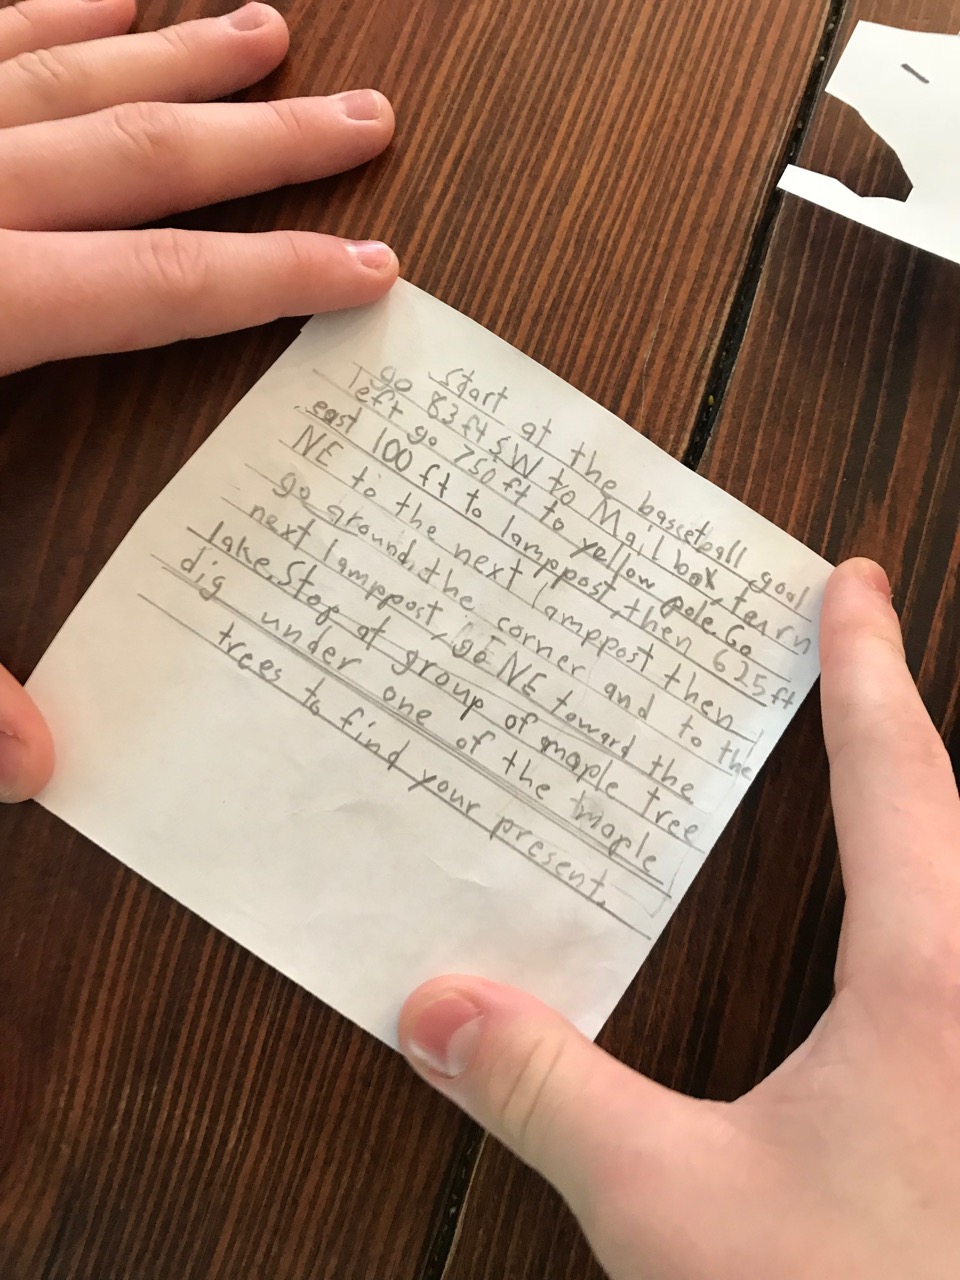 Start at the basceteall goal
go 83 ft SW to Mailbox, tearn
left go 750 ft to yellow pole. Go
east 100 ft to lamppost, then 625 ft
NE to the next lamppost then
go around the corner and to the
next lamppost, go NE toward the
lake. Stop at group of maple tree
dig under one of the maple
trees to find your present.